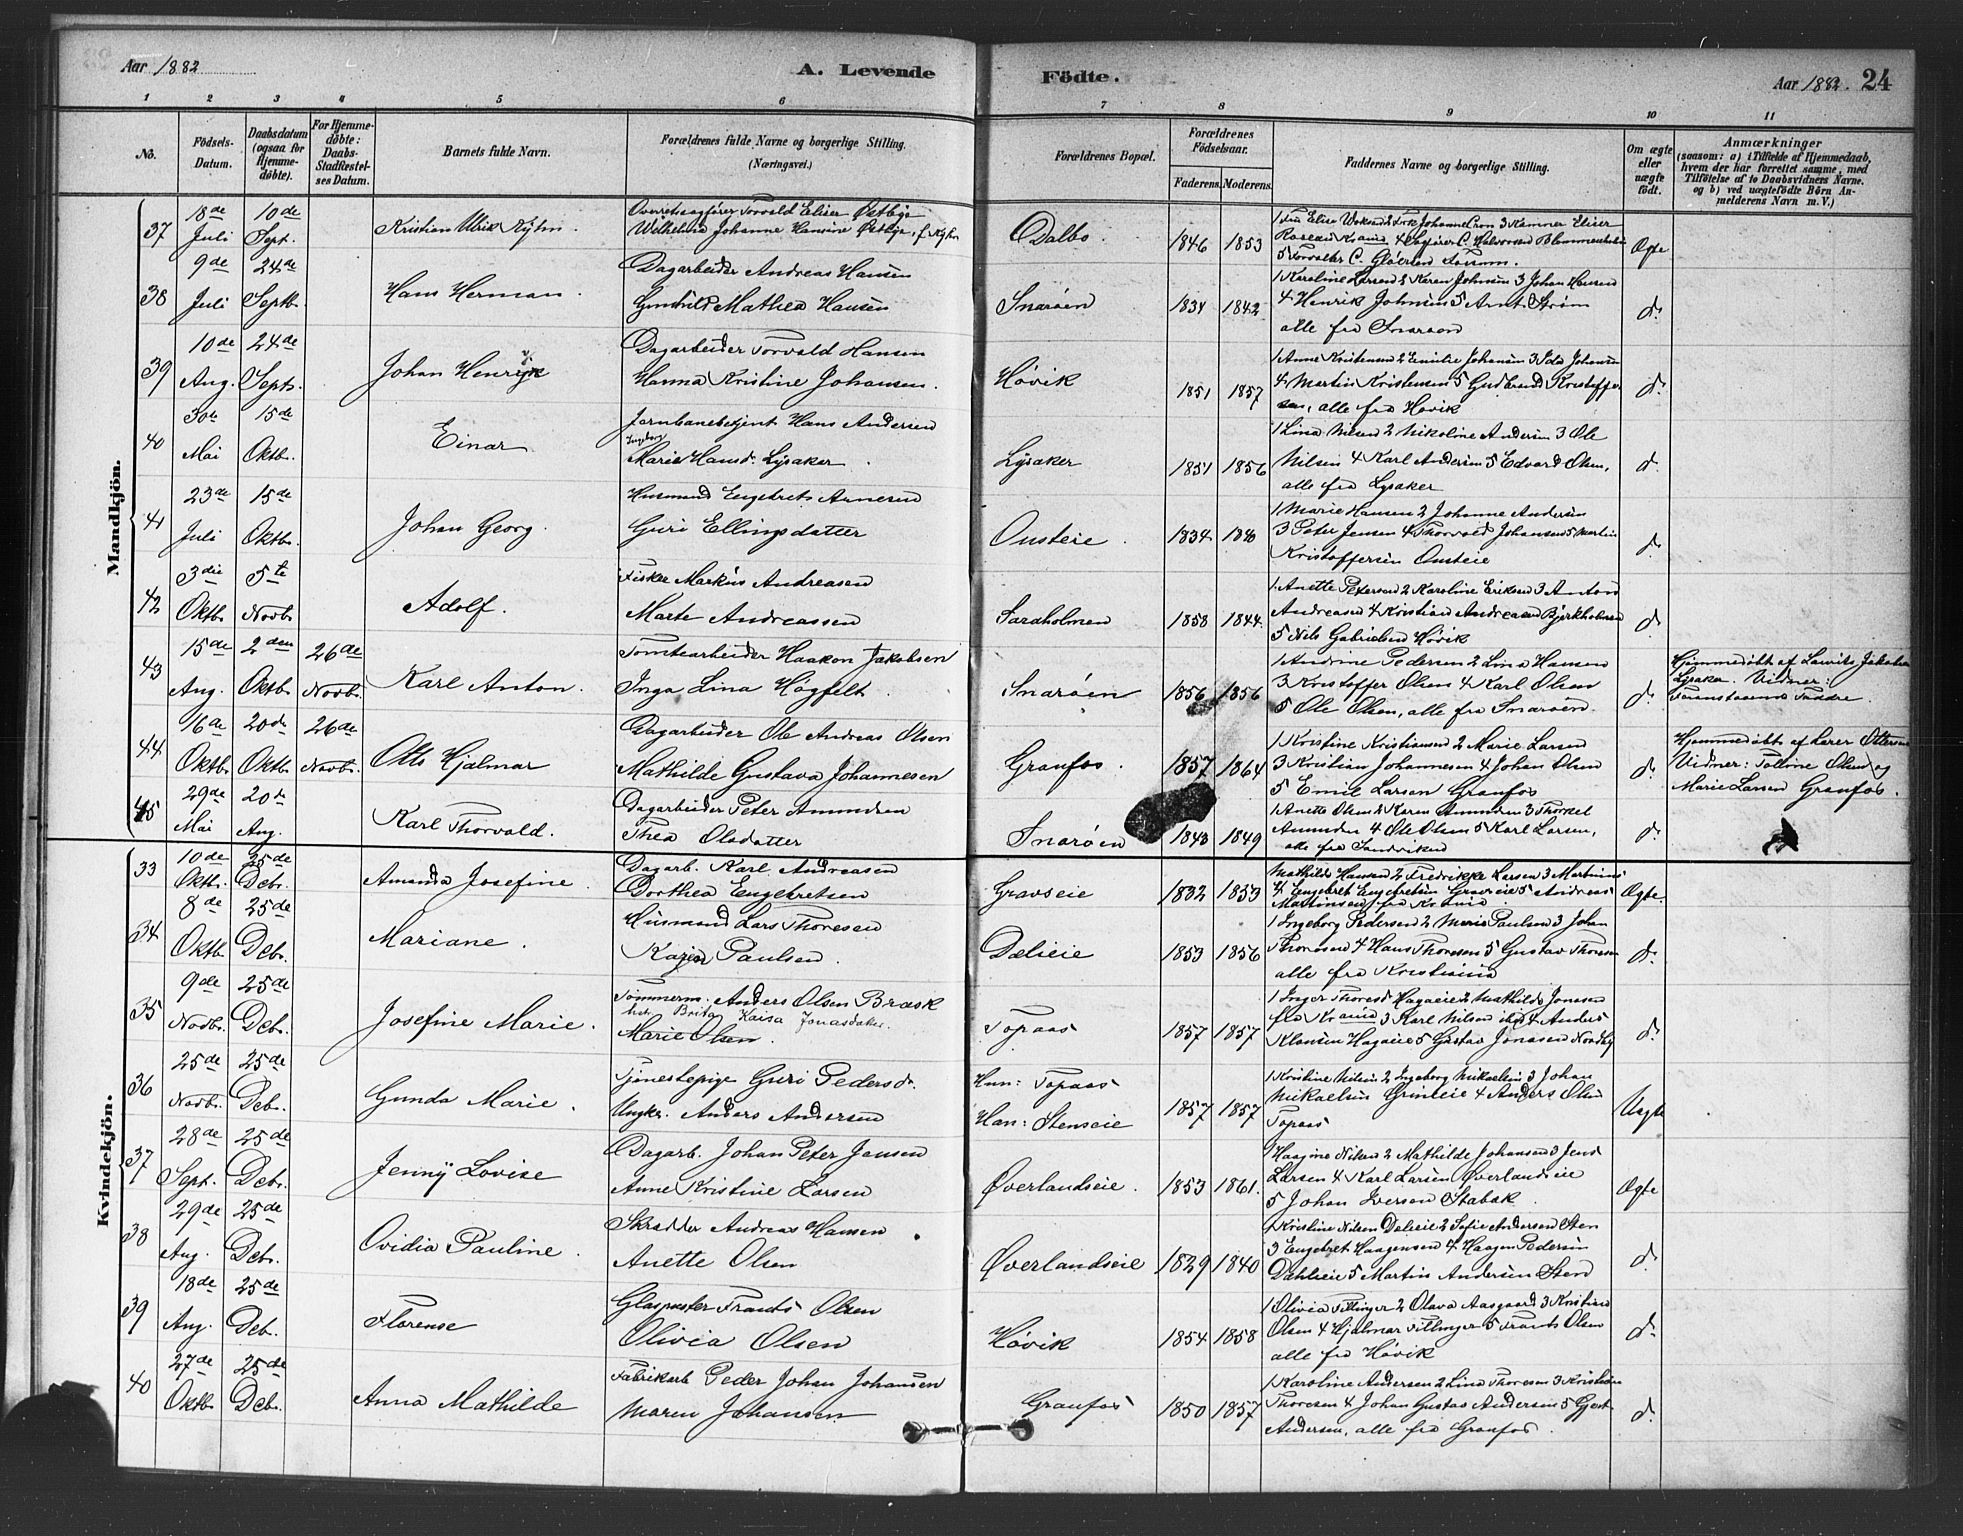 Aar 1882
A. Levende Födte.
Aar 1882. 24
1 2 3 4 5 6 7 8 9 10 11
No.
Födsels-Datum.
Daabsdatum (ogsaa for Hjemmedöbte).
For Hjemmedöbte: Daabs-Stadfæstelses Datum.
Barnets fulde Navn.
Forældrenes fulde Navne og borgerlige Stilling. (Næringsvei.)
Forældrenes Bopæl.
Forældrenes Födselsaar.
Faderens. Moderens.
Faddernes Navne og borgerlige Stilling.
Om ægte eller uægte födt.
Anmærkninger
(saasom: a) i Tilfælde af Hjemmedaab, hvem der har forrettet samme, med Tilföielse af to Daabsvidners Navne, og b) ved uægtefödte Börn Anmelderens Navn m. V.)
Mandkjön.
37 18de Juli 10de Sept. Kristian Ulrik
Torvald Eliser Østbye
Wilhelmine Johanne Hansine Østbye, f.
Dalbo. 1846 1853 Ægte
38 9de Juli 24de Septb. Hans Herman.
Dagarbeider Andreas Hansen
Gunhild Mathea Hansen
Snarøen 1834 1842
1 Karoline Larsen 2 Karen Johnsen 3 Johan Hansen
4 Henrik Johnsen 5 Arnt Strøm
alle fra Snarøen d.
39 10de Aug. 24de Sept. Johan Henryk
Dagarbeider Torvald Hansen
Hanna Kristine Johansen.
Høvik 1851 1857
1 Anne Kristensen 2 Emilie Johansen 3 Ida Johansen
4 Martin Kristensen 5 Gudbrand Kristoffersen, alle fra Høvik d.
40 30te Mai 15de Oktb. Einar
Jernbanebetjent Hans Andersen
Ingeborg Marie Hansd. Lysaker.
Lysaker 1851 1856
1 Lina Nilsen 2 Nikoline Andersen 3 Ole
Nilsen 4 Karl Andersen 5 Edvard Olsen,
alle fra Lysaker d.
41 23de Juli 15de Oktb. Johan Georg.
Husmand Engebret Arnesen
Guri Ellingsdatter
Onsteie. 1834 1840
1 Marie Hansen 2 Johanne Andersen
3 Peter Jensen 4 Thorvald Johansen 5 Martin
Kristoffersen Onsteie d.
42 3die Oktb. 5te Novb. Adolf.
Fisker Markus Andreasen
Marte Andreassen
Saraholmen 1858 1844.
1 Anette Petersen 2 Karoline Eriksen 3 Anton
Andreasen 4 Kristian Andreasen Bjerkholmen
5 Nils Gabrielsen Høvik d.
43 15de Aug. 2den Oktb. 26de Novb. Karl Anton.
Tomtearbeider Haakon Jakobsen
Inga Lina Høgfelt.
Snarøen 1856 1856
1 Andrine Pedersen 2 Lina Hansen
3 Kristoffer Olsen 4 Karl Olsen
5 Ole Olsen, alle fra Snarøen. d.
Hjemmedøbt af Lovise Jakobsen
Lysaker. Vidner:
Faddere.
44 16de Oktb. 20de Oktb. 26de Novb. Otto Hjalmar
Dagarbeider Ole Andreas Olsen
Mathilde Gustava Johannesen
Granfos. 1857 1864
1 Kristine Kristiansen 2 Marie Larsen
3 Kristian Johannesen 4 Johan Olsen
5 Emil Larsen Granfos d.
Hjemmedøbt af Lærer Ottersen
Vidner: Olsen og
Marie Larsen Granfos.
45 29de Mai 20de Aug. Karl Thorvald.
Dagarbeider Peter Amundsen
Thea Olsdatter
Snarøen 1843 1849
1 Anette Olsen 2 Karen Amundsen 3 Thorkel
Amundsen 4 Ole Olsen 5 Karl Larsen,
alle fra Sandviken d.
Kvindekjön.
33 10de Oktb. 25de Debr. Amanda Josefine.
Dagarb. Karl Andreasen
Dorthea Engebretsen
Gravseie 1832 1853
Mathilde Hansen 2 Fredrikke Larsen 3
4 Engebret Engebretsen Gravseie 5 Andreas
Martinsen Ægte.
34 8de Oktb. 25de Debr. Mariane.
Husmand Lars Thoresen
Karen Paulsen.
Dælieie 1853 1856
1 Ingeborg Pedersen 2 Marie Paulsen 3 Johan
Thoresen 4 Hans Thoresen 5 Gustav Thoresen
alle fra Kristiania d.
35 9de Novb. 25de Debr. Josefine Marie.
Tømmerm. Anders Olsen Bræsk
Brita Kaisa Jonasdatter
Marie Olsen.
Topaas 1857 1857
1 Inger Thoresd Hagaeie 2 Mathilde Jonasen
3 Karl Nilsen 4 Anders
Klausen Hagaeie 5 Gustav Jonasen Nordby d.
36 25de Novb. 25de Debr. Gunda Marie.
Tjenestepige Guri Pedersdr.
Ungkr. Anders Andersen
Hun: Topaas
Han: Stenseie 1857 1857
1 Kristine Nilsen 2 Ingeborg Mikaelsen 3 Johan
Mikaelsen Grinieie 4 Anders Olsen
Topaas Uægte
37 28de Sept. 25de Debr. Jenny Lovise
Dagarb. Johan Peter Jensen
Anne Kristine Larsen
Øverlandseie. 1853 1861.
2 Mathilde Johansen 3 Jens
Larsen 4 Karl Larsen Øverlandseie
5 Johan Iversen Stabæk. Ægte
38 29de Aug. 25de Debr. Ovidia Pauline.
Skrædder Andreas Hansen
Anette Olsen
Øverlandseie 1829 1840
1 Kristine Nilsen Dælieie 2 Sofie Andersen Sten
3 Engebret Haagensen 4 Haagen Pedersen
Dæhlieie 5 Martin Andersen Sten d.
39 18de Aug. 25de Debr. Florense
Glaspuster Frants Olsen
Olivia Olsen
Høvik 1854 1858
1 Olivia Titlinger 2 Olava Aasgaard 3 Kristine
Olsen 4 Hjalmar Titlinger 5 Frants Olsen
alle fra Høvik d.
40 27de Oktb. 25de Debr. Anna Mathilde
Fabrikarb. Peder Johan Johansen
Maren Johansen
Granfos 1850 1857
1 Karoline Andersen 2 Lina Thoresen 3 Kristian
Thoresen 4 Johan Gustav Andersen 5 Gjert
Andersen, alle fra Granfos. d.